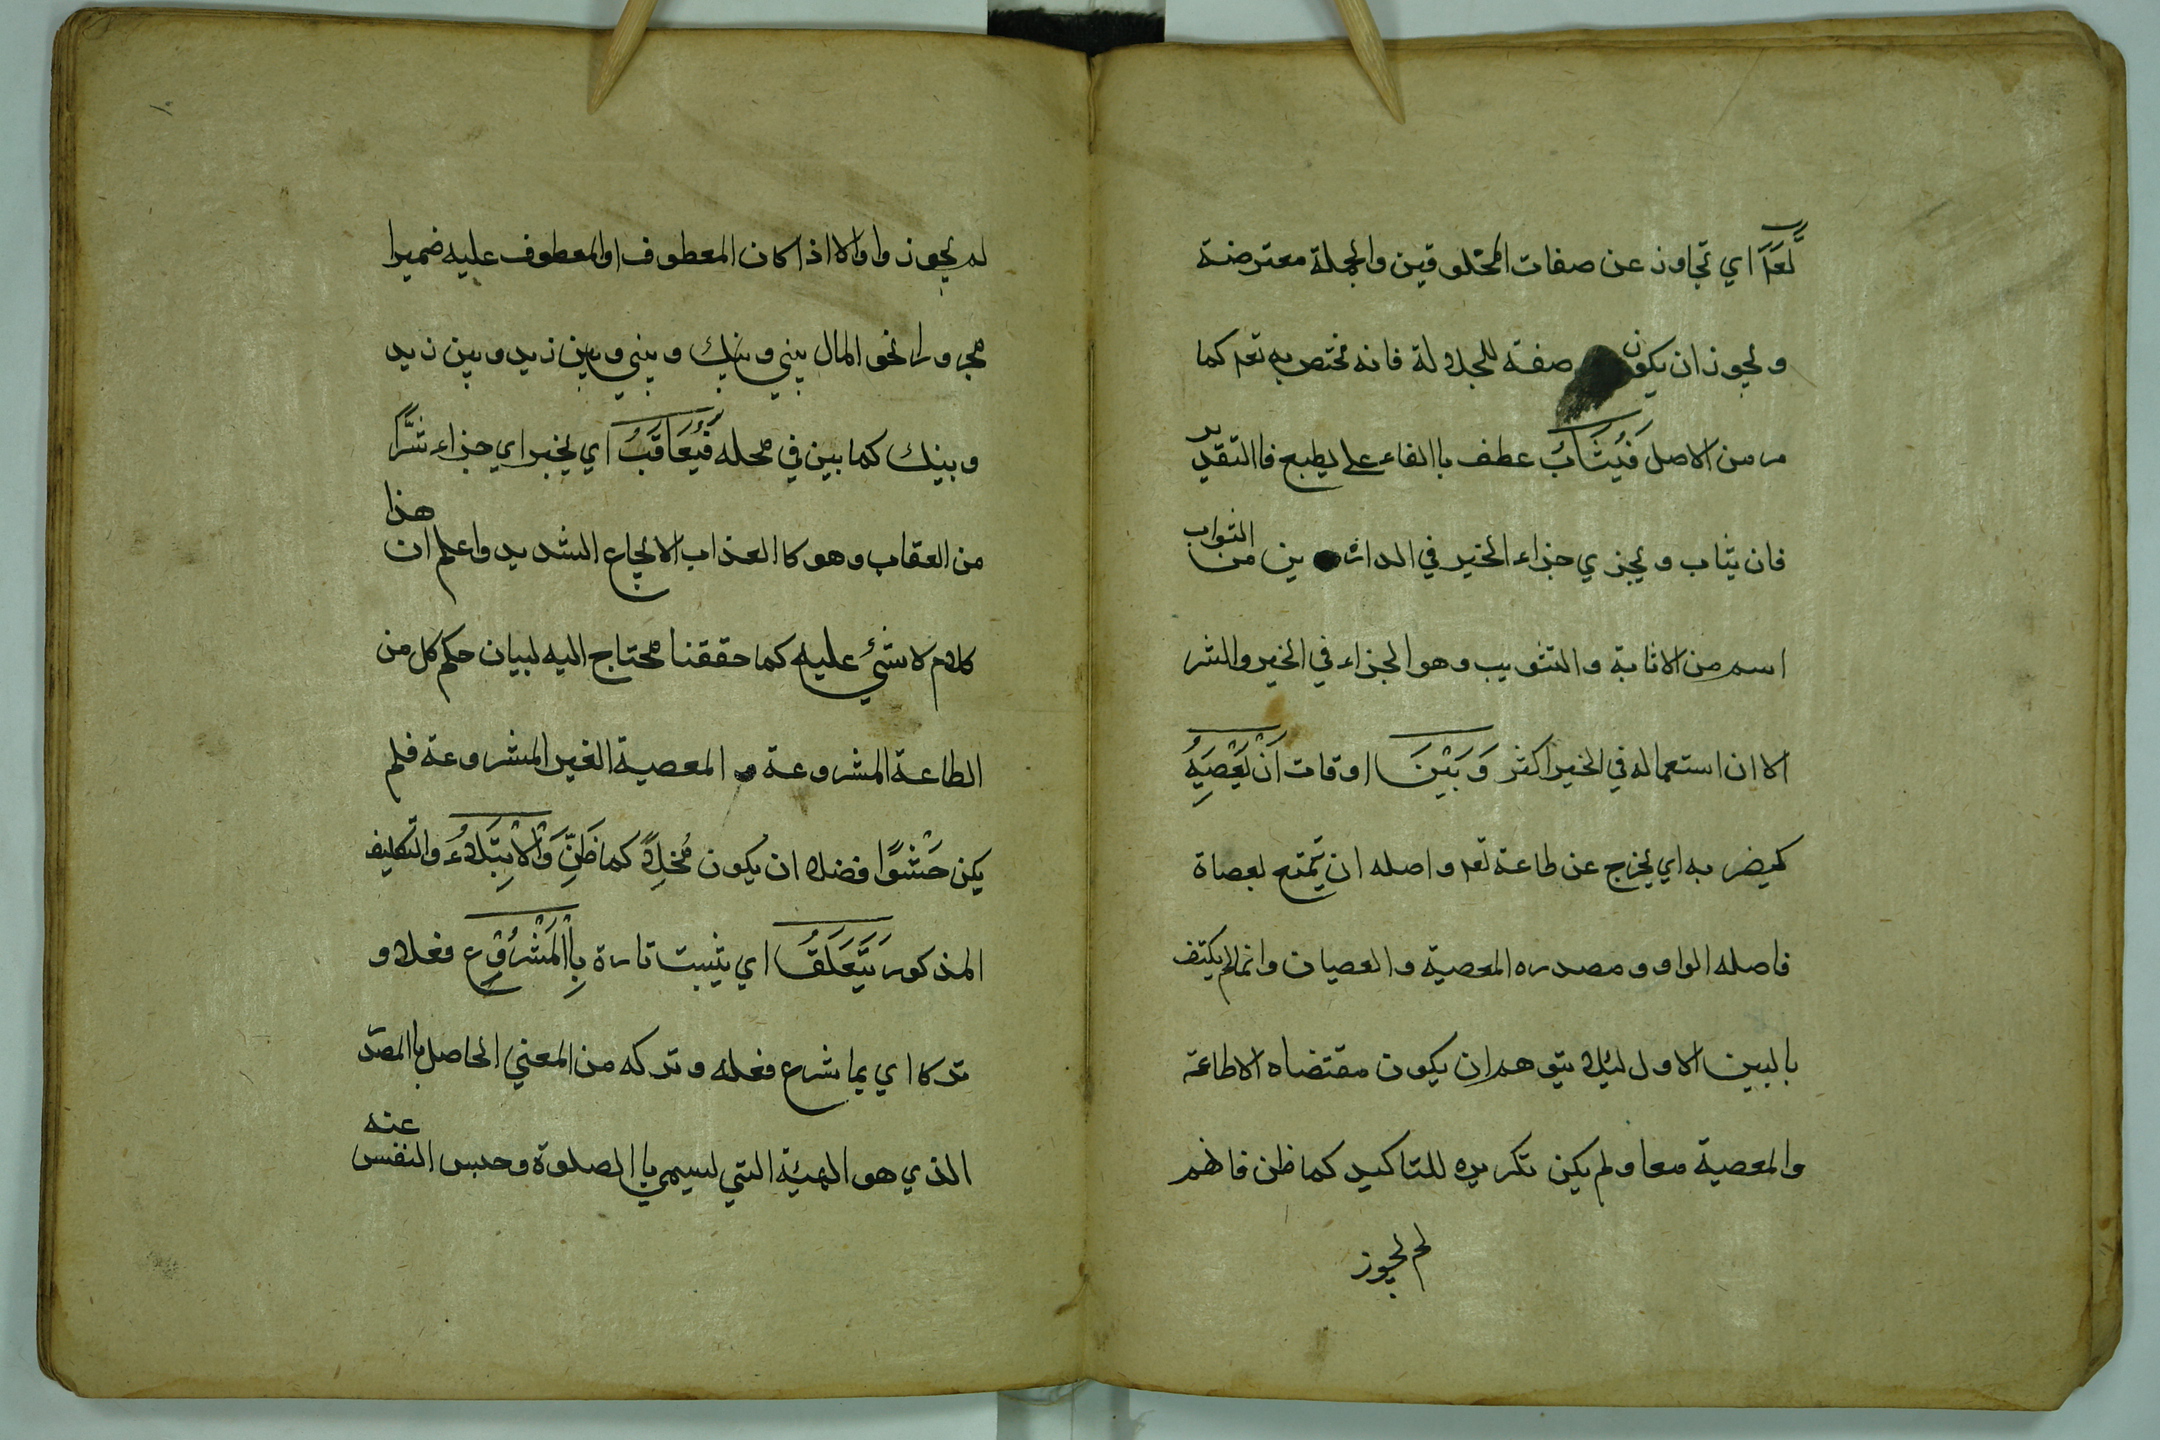 تعَالَى اي تجاوز عن صفات المخلوقين والجملة معترضة
ويجوز ان يكون صفة للجلالة فانه مختص به تعم كما
مر من الاصل فَيُثَابُ عطف باالفاء علي يطيع فاالتقدير
فان يثاب ويجزي جزاء الخير في الدارين من الثواب
اسم من الاثابة والتثويب وهو الجزاء في الخير والشر
الا ان استعماله في الخير اكثر وَبَيْنَ اوقات اَنْ يَعْصِيَهُ
كيضربه اي يخرج عن طاعة تعم واصله ان يمتع بعصاة
فاصله الواو ومصدره المعصية والعصيان وانما لم يكتف
بالبين الاول ليلا يتوهم ان يكون مقتضاه الاطاعة
والمعصية معا ولم يكن تكريره للتاكيد كما ظن فافهم
لم يجوز
لم يجوزوا والا اذا كان المعطوف او المعطوف عليه ضميرا
مجرورا نحو المال بيني وبينك وبيني وبين زيد وبين زيد
وبينك كما بين في محله فَيُعَاقَبُ اي يخبر اي جزاء شَرًّا
من العقاب وهو كاالعذاب الايجاع الشديد واعلم ان هذا
كلام لا شيء عليه كما حققنا محتاج اليه لبيان حكم كل من
الطاعة المشروعة و المعصية الغير المشروعة فلم
يكن حَشْوًا فضلا ان يكون مُخِلاًّ كما ظَنَّ وَالْاِبْتِلَاءُ والتكليف
المذكور يَتَعَلَّقُ اي يثبت تارة بِاالْمَشْرُوْعِ فعلا و
تركا اي بما شرع فعله وتركه من المعني الحاصل باالمصد
الذي هو الهيئة التي يسمي باالصلوة وحبس النفس عنه